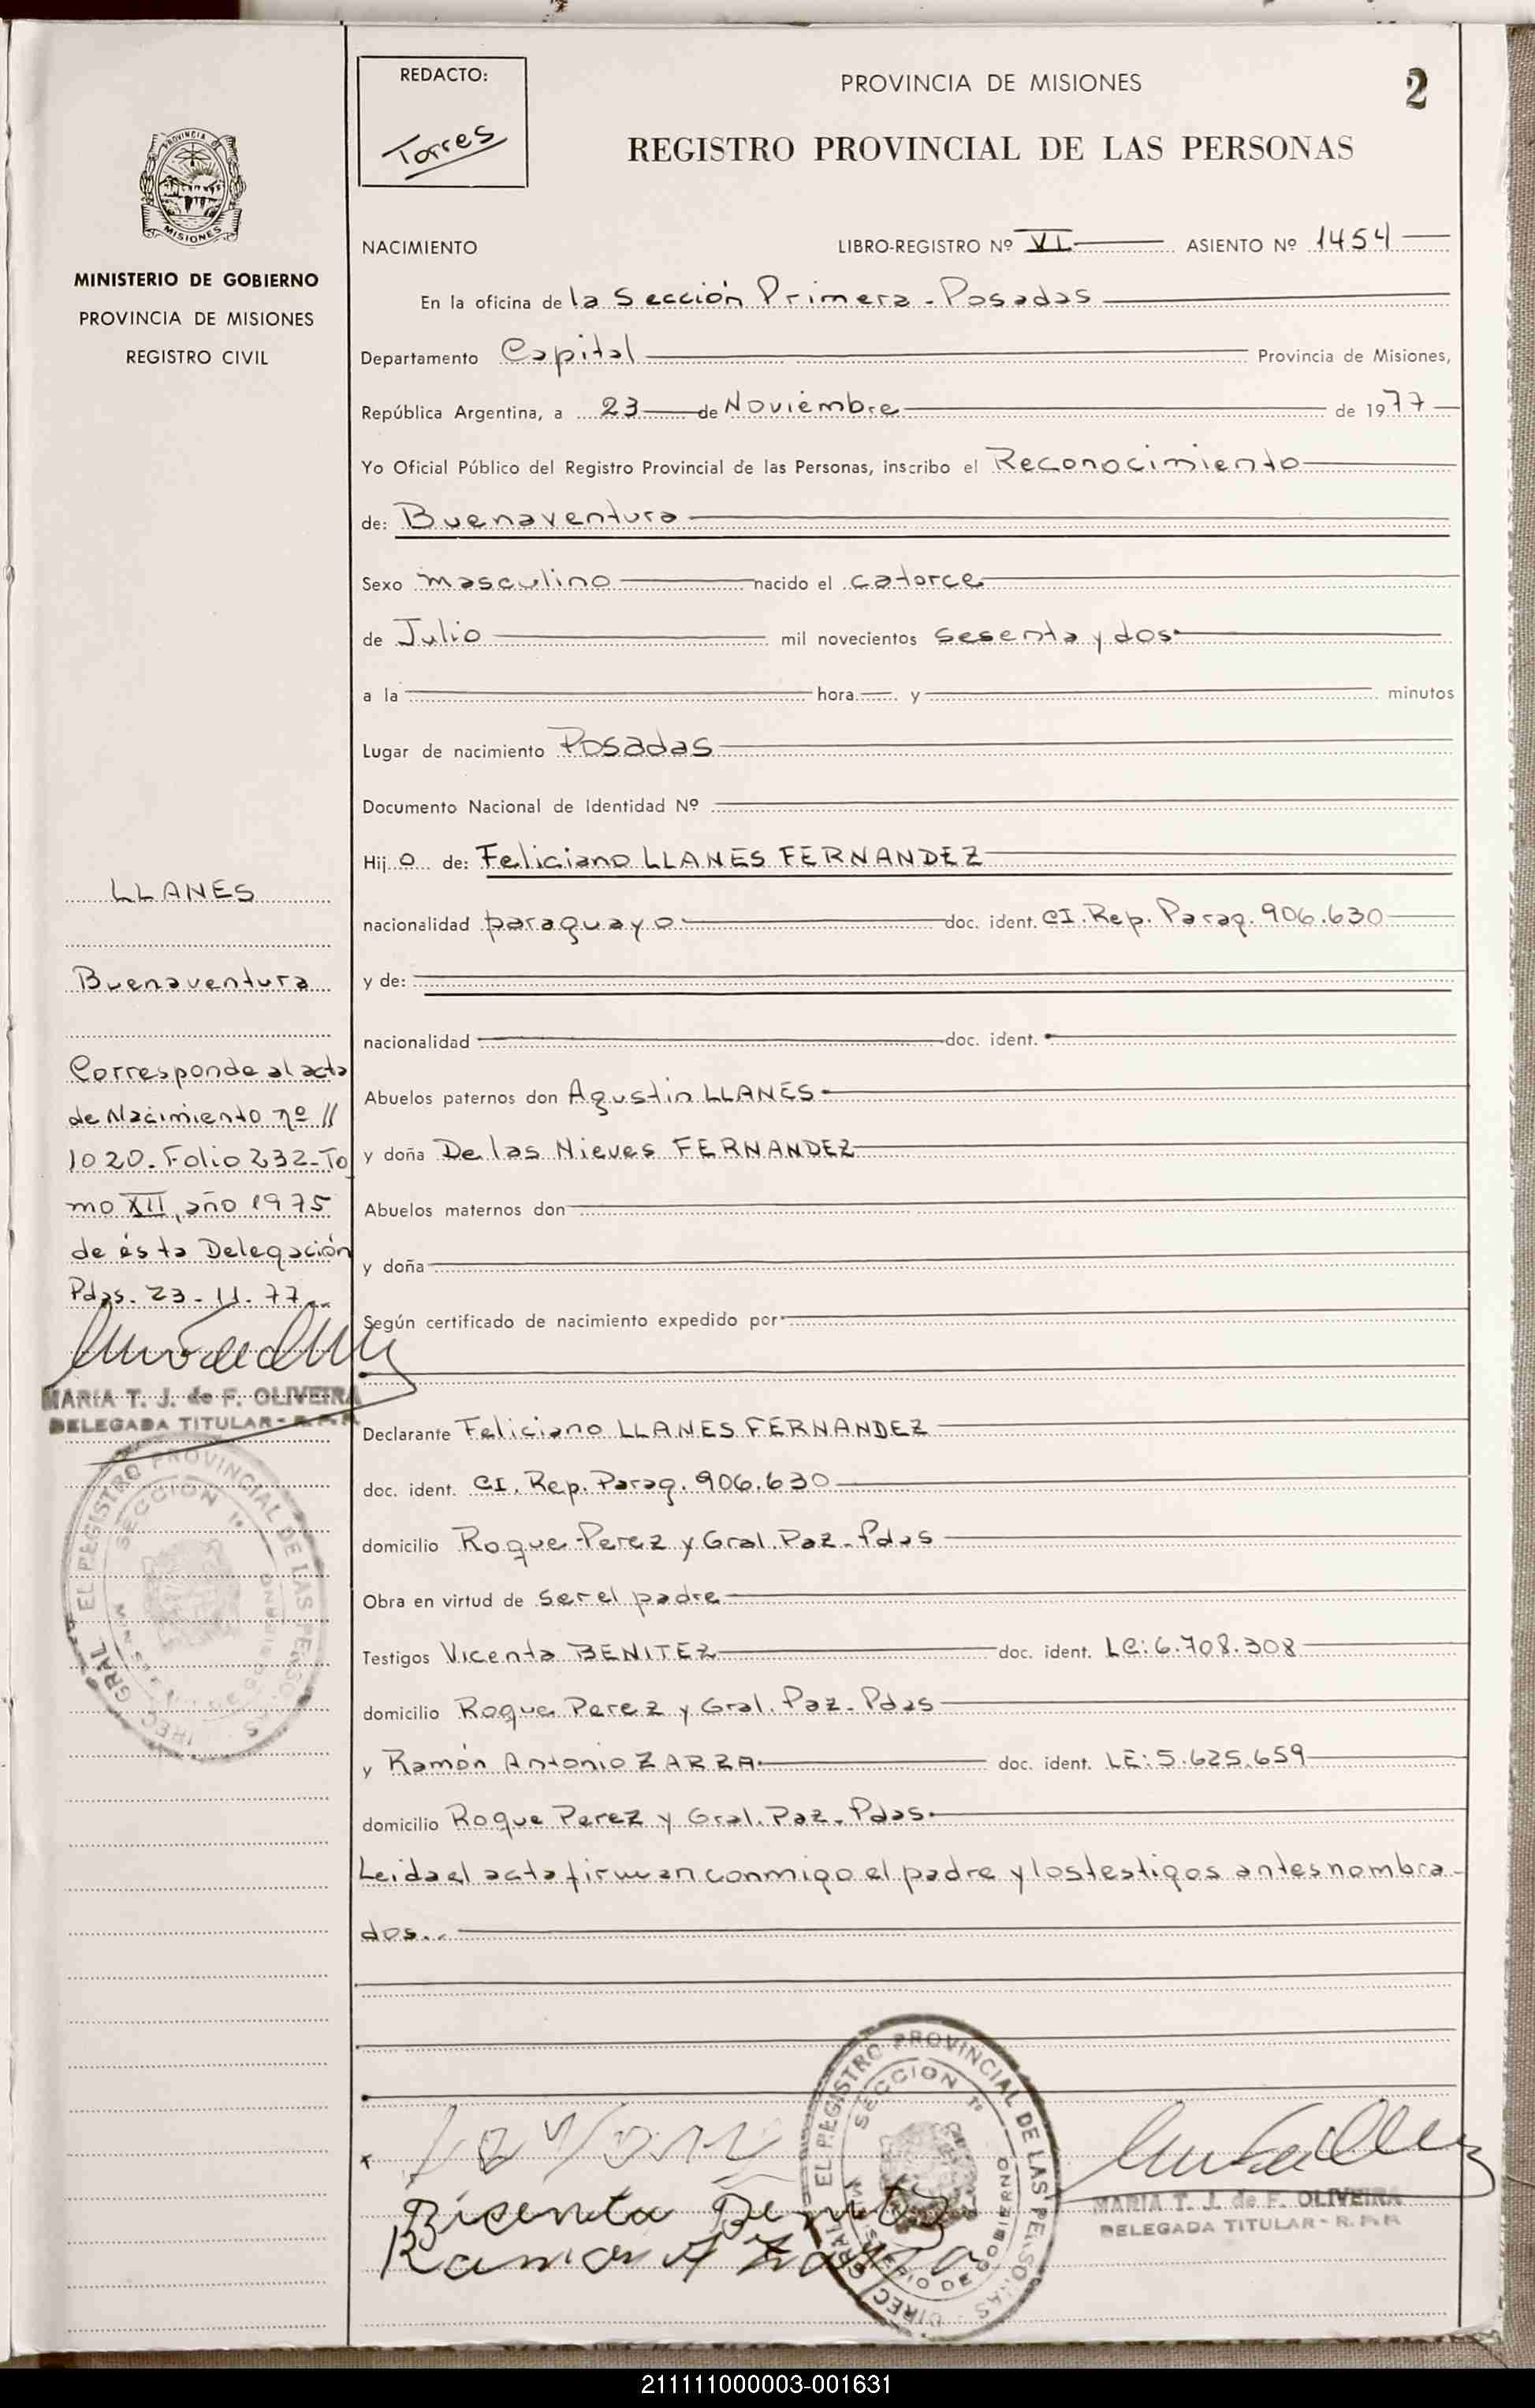 REDACTO:
Torres
PROVINCIA DE MISIONES
2
REGISTRO PROVINCIAL DE LAS PERSONAS
PROVINCIA
MISIONES
MINISTERIO DE GOBIERNO
PROVINCIA DE MISIONES
REGISTRO CIVIL
NACIMIENTO LIBRO-REGISTRO Nº VI ASIENTO Nº 1454
En la oficina de la Sección Primera - Posadas
Departamento Capital Provincia de Misiones,
República Argentina, a 23 de Noviembre de 1977
Yo Oficial Público del Registro Provincial de las Personas, inscribo el Reconocimiento
de: Buenaventura
Sexo masculino nacido el catorce
de Julio mil novecientos sesenta y dos
a la hora y minutos
Lugar de nacimiento Posadas
Documento Nacional de Identidad Nº
Hij o de: Feliciano LLANES FERNANDEZ
nacionalidad paraguayo doc. ident. CI. Rep. Parag. 906.630
y de:
nacionalidad doc. ident.
Abuelos paternos don Agustin LLANES
y doña De las Nieves FERNANDEZ
Abuelos maternos don
y doña
Según certificado de nacimiento expedido por
Declarante Feliciano LLANES FERNANDEZ
doc. ident. CI. Rep. Parag. 906.630
domicilio Roque Perez y Gral. Paz - Pdas
Obra en virtud de ser el padre
Testigos Vicenta BENITEZ doc. ident. LC: 6.708.308
domicilio Roque Perez y Gral. Paz - Pdas
y Ramón Antonio ZARZA doc. ident. LE: 5.625.659
domicilio Roque Perez y Gral. Paz - Pdas
Leida el acta firman conmigo el padre y los testigos antes nombra-
dos..
LLANES
Buenaventura
Corresponde al acta
de Nacimiento nº //
1020 - Folio 232 - To
mo XII, año 1975
de ésta Delegación
Pdas. 23 - 11 - 77
MARIA T. J. de F. OLIVEIRA
DELEGADA TITULAR - R.P.P.
DIREC. GRAL. EL REGISTRO PROVINCIAL DE LAS PERSONAS
SECCION 1º
Bicenta Benitez
Ramon A Zarza
DIREC. GRAL. EL REGISTRO PROVINCIAL DE LAS PERSONAS
SECCION 1º
MINISTERIO DE GOBIERNO
MARIA T. J. de F. OLIVEIRA
DELEGADA TITULAR - R.P.P.
211111000003-001631